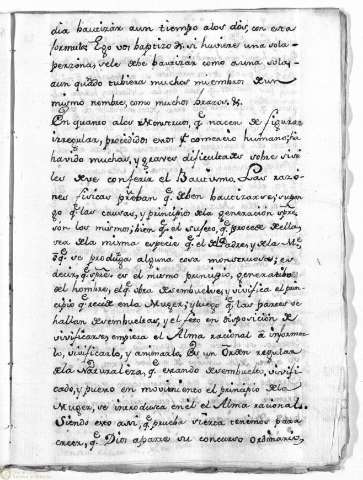 dia bautizar aun tiempo alos dos, con esta
formula: Ego vos baptizo &. si huviere una sola
persona, se le debe bautizar como aúna sola,
aun quando tubiera muchos miembros de un
mismo nombre, como muchos brazos. &.
En quanto alos Monstruos, q. nacen de figura
irregular, procedidos en comercio humano; ha
havido muchas, y graves dificultades sobre si se
les debe conferir el Bautismo. Las razo
nes fisicas prueban q. deben bautizarse; supues
go q. las causas, y principios dela generación spre.
son los mismos; bien q. el sujeto, q. procede dellas,
sea dela misma especie q. el Padre, y dela M.
q. se produzga alguna cosa monstruosa; es
decir, q. spre. es el mismo principio, generativo
del hombre, el q. obra desembuelve, y vivifica el prin
cipio q. recide en la Muger; y luego q. las partes se
hallan desembueltas, y el feto en disposición de
vivificarse, empieza el Alma racional à informar
lo, vivificarlo, y animarlo. Es un Orden regular
dela Naturaleza, q. estando desembuelto, vivifi
cado, y puesto en movimiento el principio dela
Muger, se introdusca en èl el Alma racional.
Siendo esto asi, q. prueba cierta tenemos para
creer, q. Dios aparte su concurso ordinario,